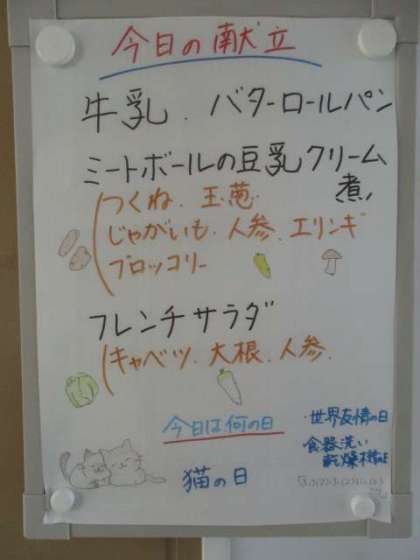 今日の献立
牛乳．バターロールパン
ミートボールの豆乳クリーム煮
つくね．玉葱．
じゃがいも．人参．エリンギ
ブロッコリー
フレンチサラダ
キャベツ．大根．人参．
今日は何の日
・世界友情の日
食器洗い
乾燥機の日
猫の日